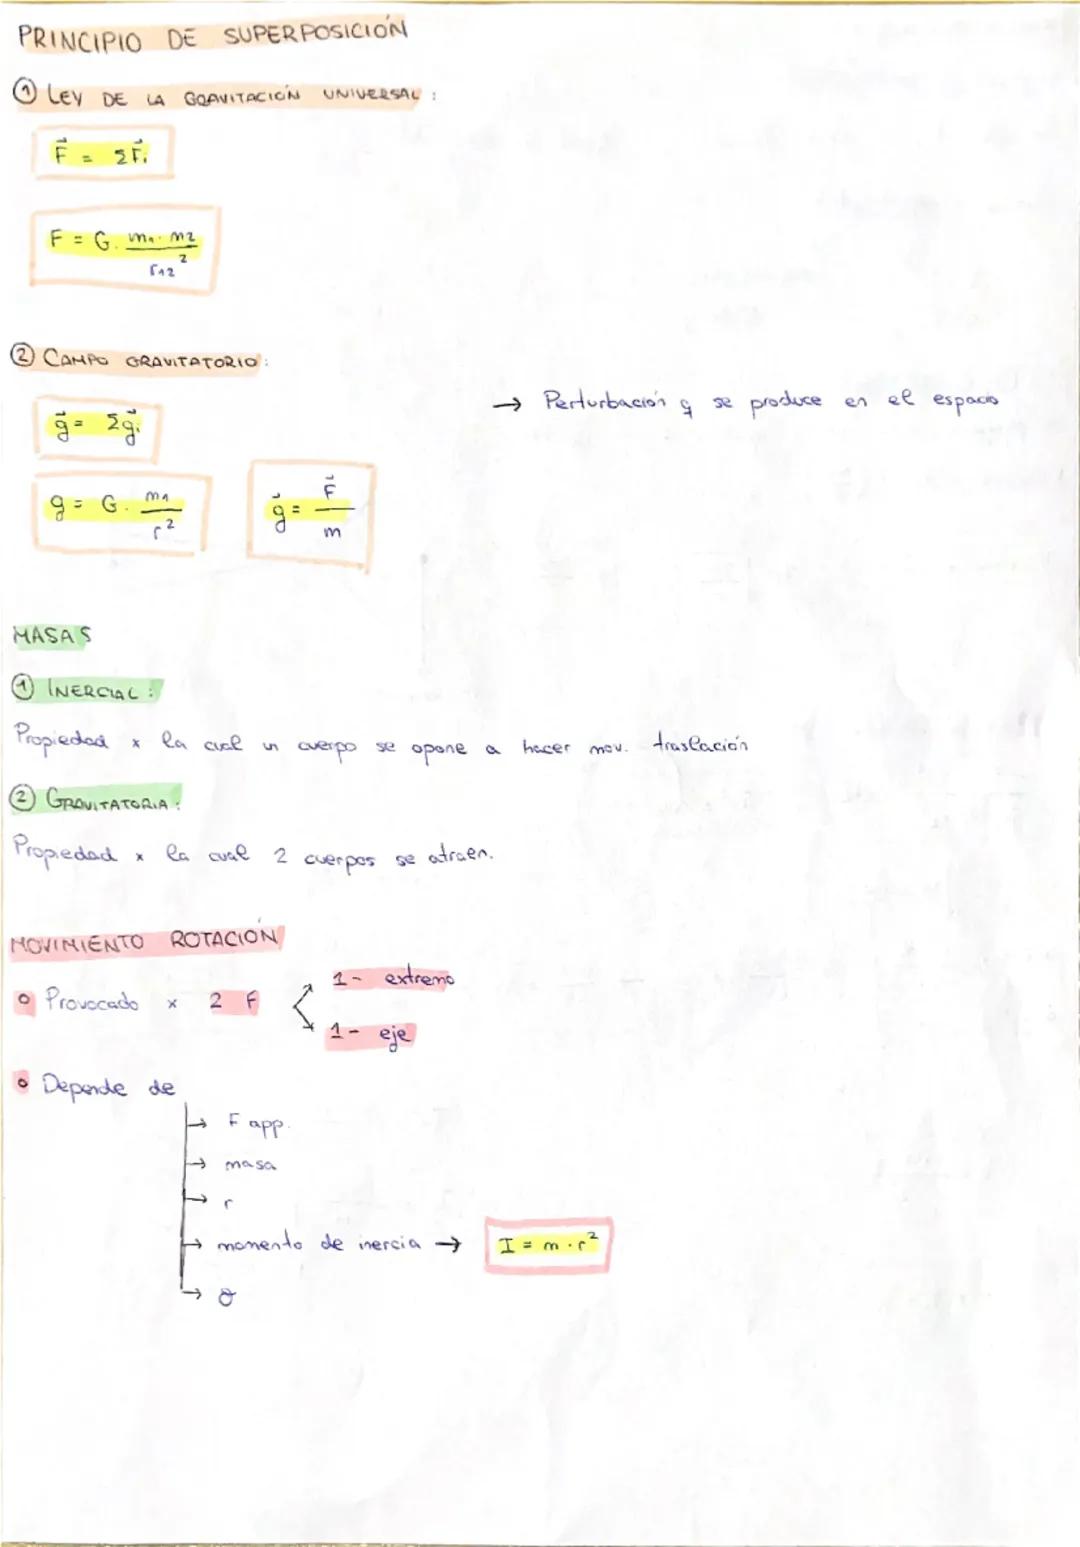 PRINCIPIO DE SUPERPOSICIÓN
① LEY DE LA GRAVITACIÓN UNIVERSAL :
F⃗ = ΣF⃗i
F = G · m1 · m2 / r12²
② CAMPO GRAVITATORIO:
→ Perturbación q se produce en el espacio
g⃗ = Σg⃗i
g = G · m1 / r²
g⃗ = F⃗ / m
MASAS
① INERCIAL :
Propiedad x la cual un cuerpo se opone a hacer mov. traslación
② GRAVITATORIA :
Propiedad x la cual 2 cuerpos se atraen.
MOVIMIENTO ROTACIÓN
o Provocado x 2 F
1- extremo
1- eje
o Depende de
→ F app.
→ masa
→ r
→ momento de inercia → I = m · r²
→ θ